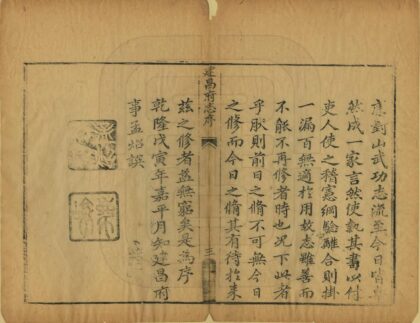 對山武功志流至今日皆卓
然成一家言然使執其書以付
吏人使之稽憲綱驗離合則掛
一漏百無適於用故志雖善而
不能不再修者時也況下此者
乎脫則前日之脩不可無今日
之修而今日之脩其有待於来
建昌府志序
三
茲之修者蓋無窮矣是爲序
乾隆戊寅年嘉平月知建昌府
事孟炤譔